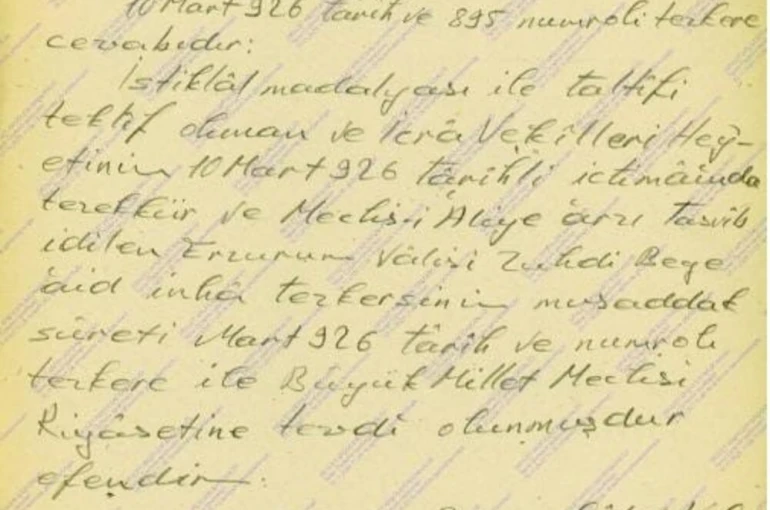 10 Mart 926 târih ve 895 numroli tezkere
cevabıdır:
İstiklâl madalyası ile taltifi
teklif olunan ve İcrâ Vekilleri Hey-
etinin 10 Mart 926 târihli ictimâında
tezekkür ve Meclis-i Âliye ârzı tasvib
idilen Erzurum Vâlisi Zühdi Beye
âid inhâ tezkersinin musaddak
sûreti Mart 926 târih ve numrolı
tezkere ile Büyük Millet Meclisi
Riyâsetine tevdi olunmuşdur
efendim.